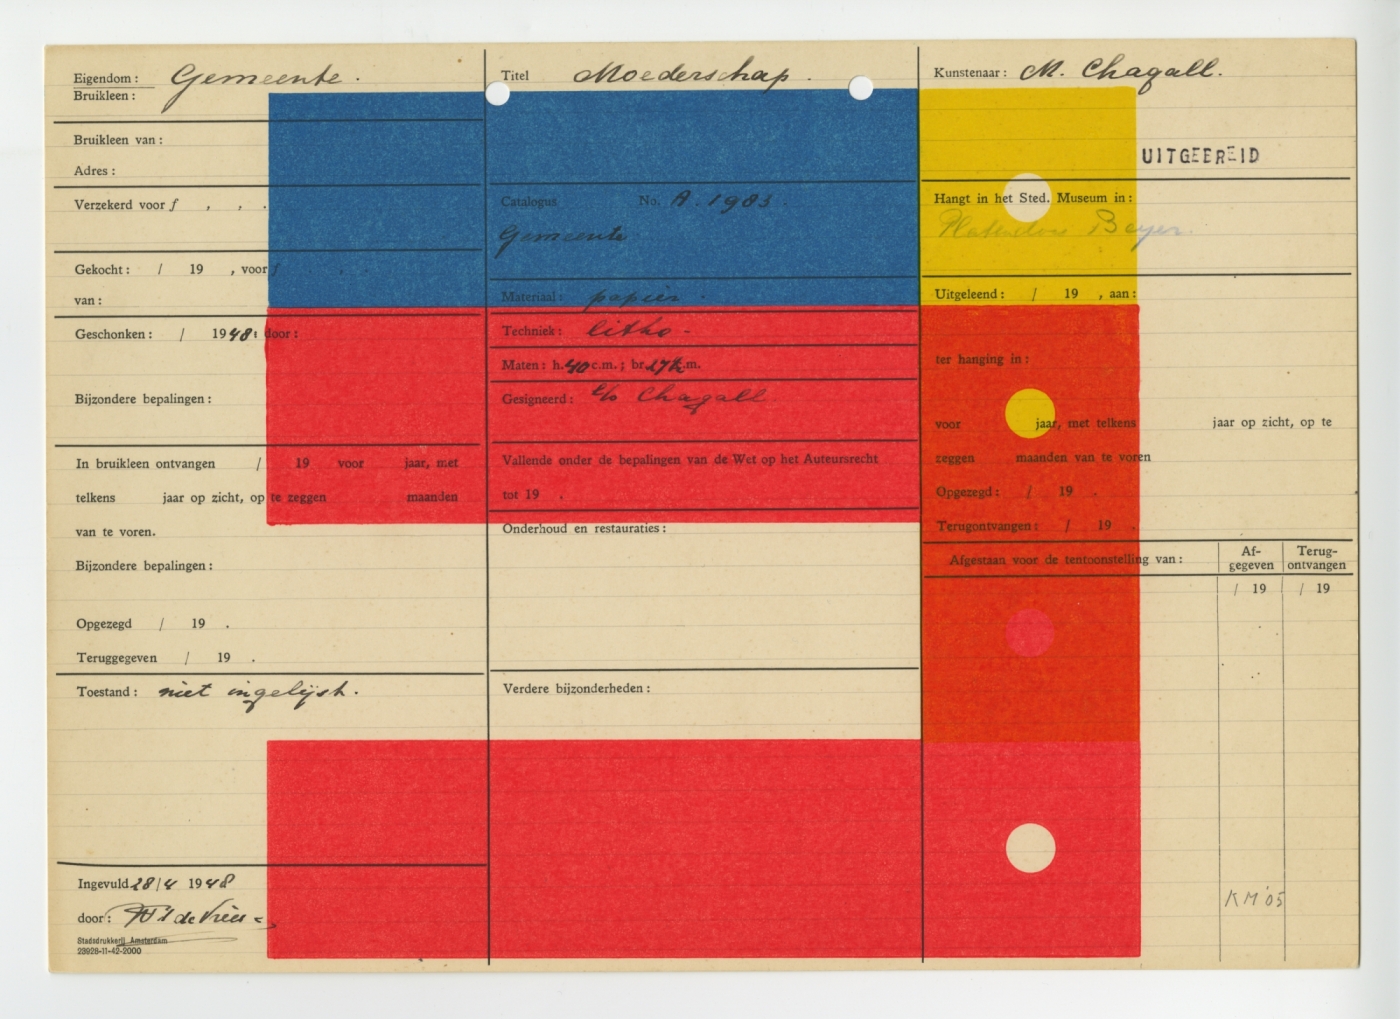 Eigendom: Gemeente.
Bruikleen:
Bruikleen van:
Adres:
Verzekerd voor f , , .
Gekocht: / 19 , voor f , .
van:
Geschonken: / 1948; door:
Bijzondere bepalingen:
In bruikleen ontvangen / 19 voor jaar, met
telkens jaar op zicht, op te zeggen maanden
van te voren.
Bijzondere bepalingen:
Opgezegd / 19 .
Teruggegeven / 19 .
Toestand: niet ingelijst.
Ingevuld 28/4 1948
door: de Vries
Stadsdrukkerij Amsterdam
23926-11-42-2000
Titel Moederschap.
Catalogus No. A. 1983.
Gemeente
Materiaal: papier.
Techniek: litho -
Maten: h. 40 c.m.; br. 27½ c.m.
Gesigneerd: Chagall
Vallende onder de bepalingen van de Wet op het Auteursrecht
tot 19 .
Onderhoud en restauraties:
Verdere bijzonderheden:
Kunstenaar: M. Chagall.
UITGEEREID
Hangt in het Sted. Museum in:
Beyer.
Uitgeleend: / 19 , aan:
ter hanging in:
voor jaar, met telkens jaar op zicht, op te
zeggen maanden van te voren
Opgezegd: / 19 .
Terugontvangen: / 19 .
Afgestaan voor de tentoonstelling van:
Af-
gegeven
Terug-
ontvangen
/ 19
/ 19
KM '05